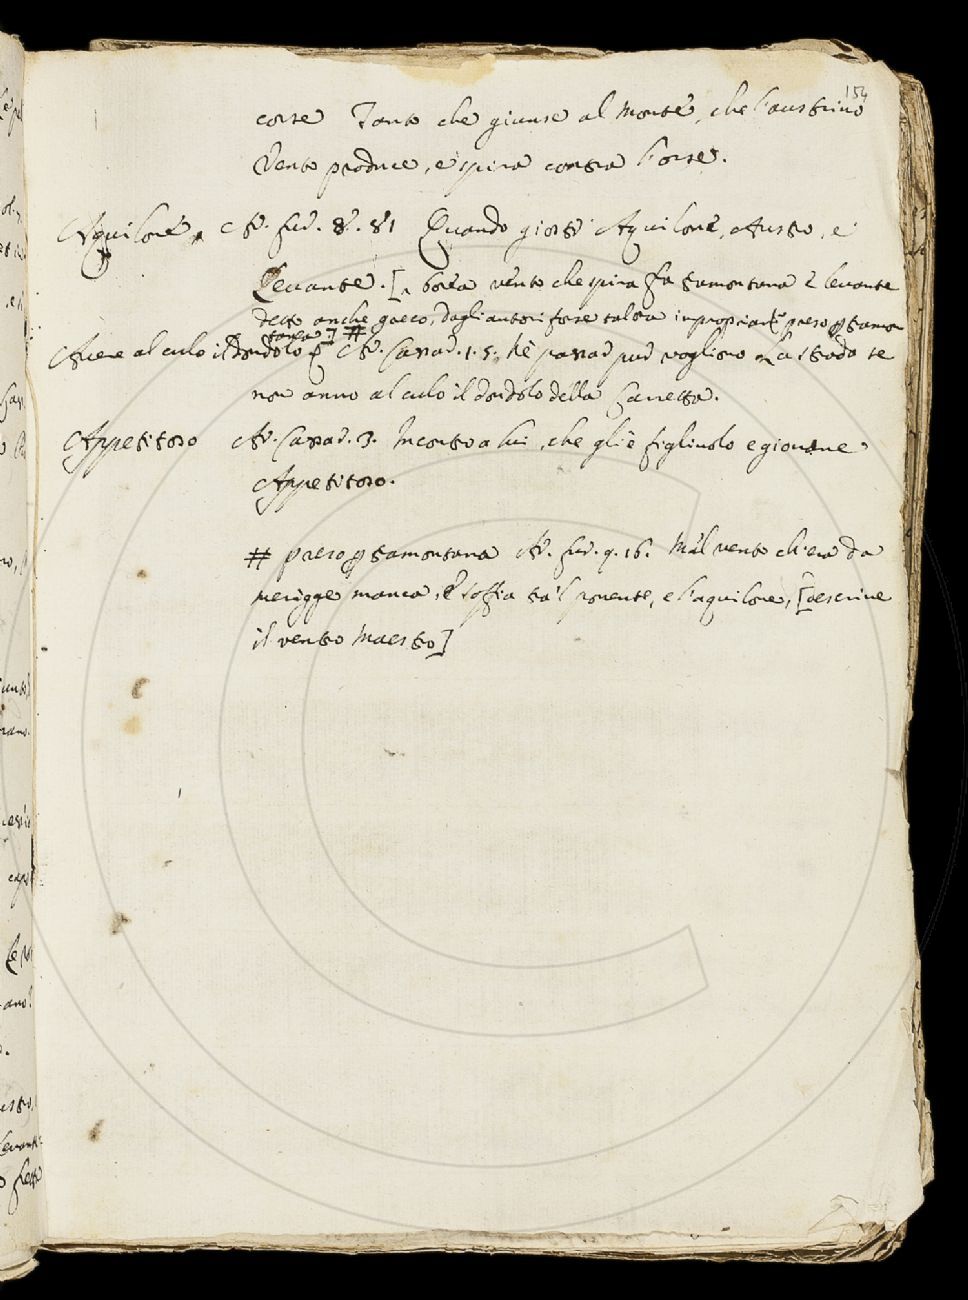 154
corse Tanto che giunse al monte, che l'austrino
Vento produce, e spira contra l'orse.
Aquilone, Ar. fur. 8. 81 Quando giostra Aquilone, Austro, e
Levante. [ borea vento che spira fra tramontana e levante
detto anche greco, dagli autori forse talora impropriamte preso p tramon
tana ] #
Avere al culo il dondolo Ar. Cassad. 1. 5. Nè passar può vogliono La strada se
non anno al culo il dondolo della Carretta.
Appetitoso Ar. Cassar. 3. Incontro a lui, che gli è figliuolo e giovane
Appetitoso.
# preso p tramontana Ar. fur. 9. 16. Mal vento ch'era da
merigge manca, E soffia tra 'l ponente, e l'aquilone, [descrive
il vento Maestro]